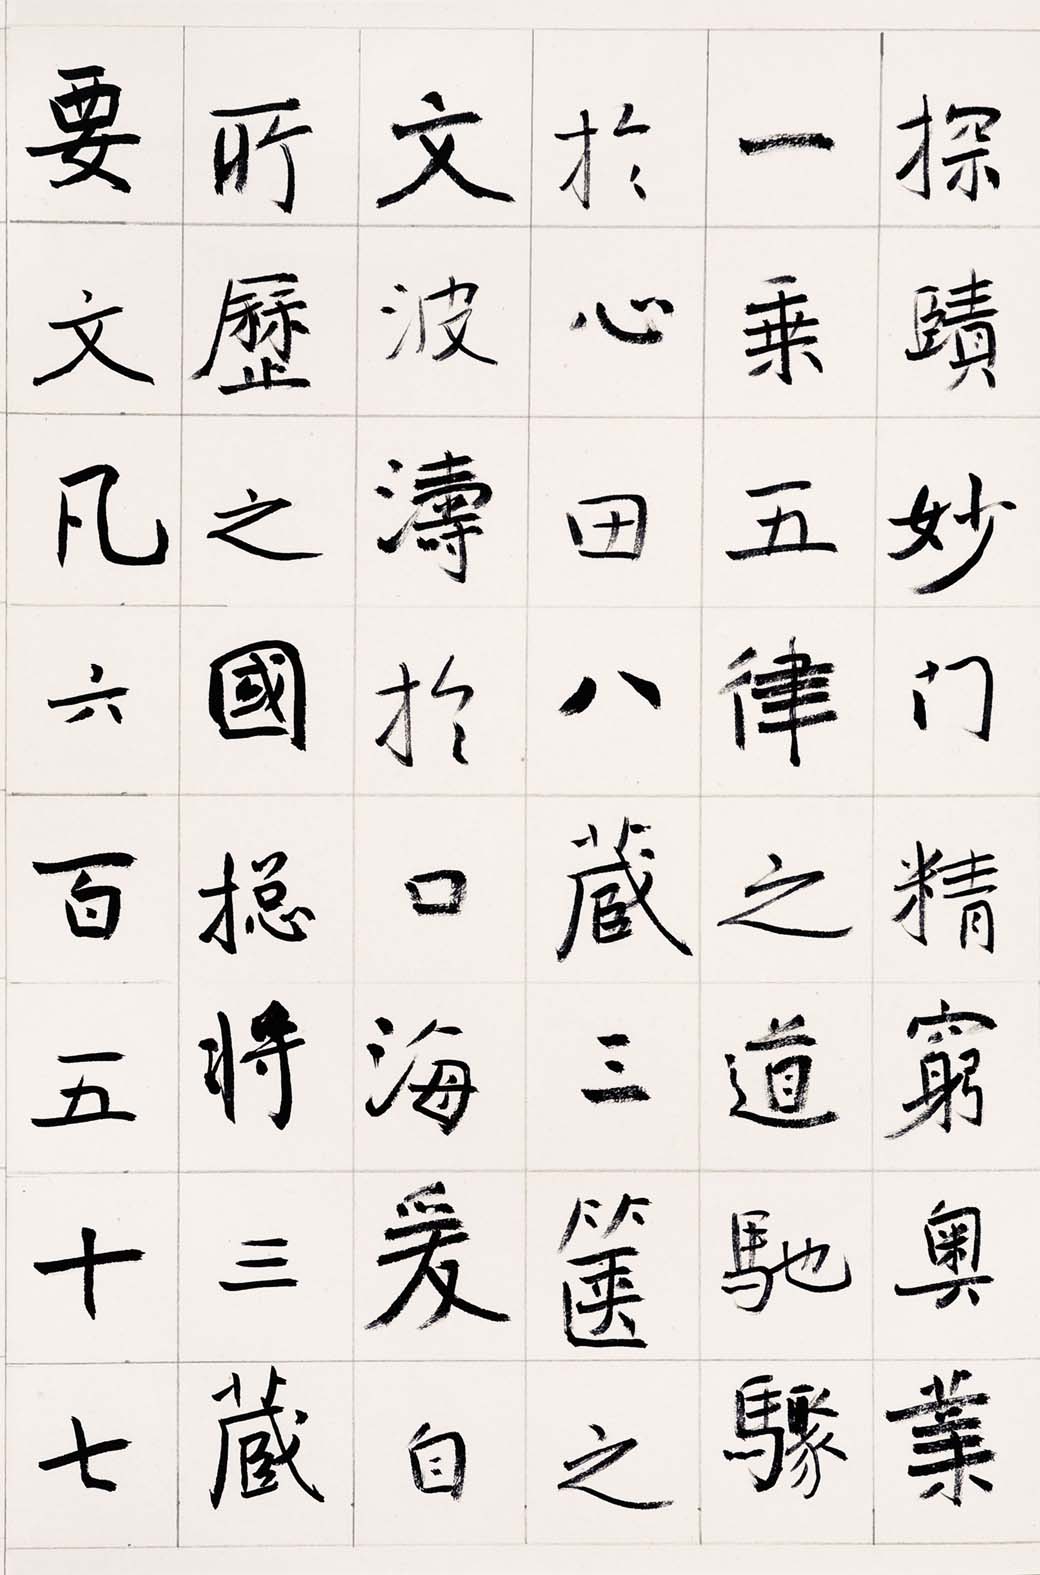 探賾妙门精窮奥業
一乗五律之道馳驟
於心田八蔵三篋之
文波濤於口海爰自
所歷之國捴將三蔵
要文凡六百五十七